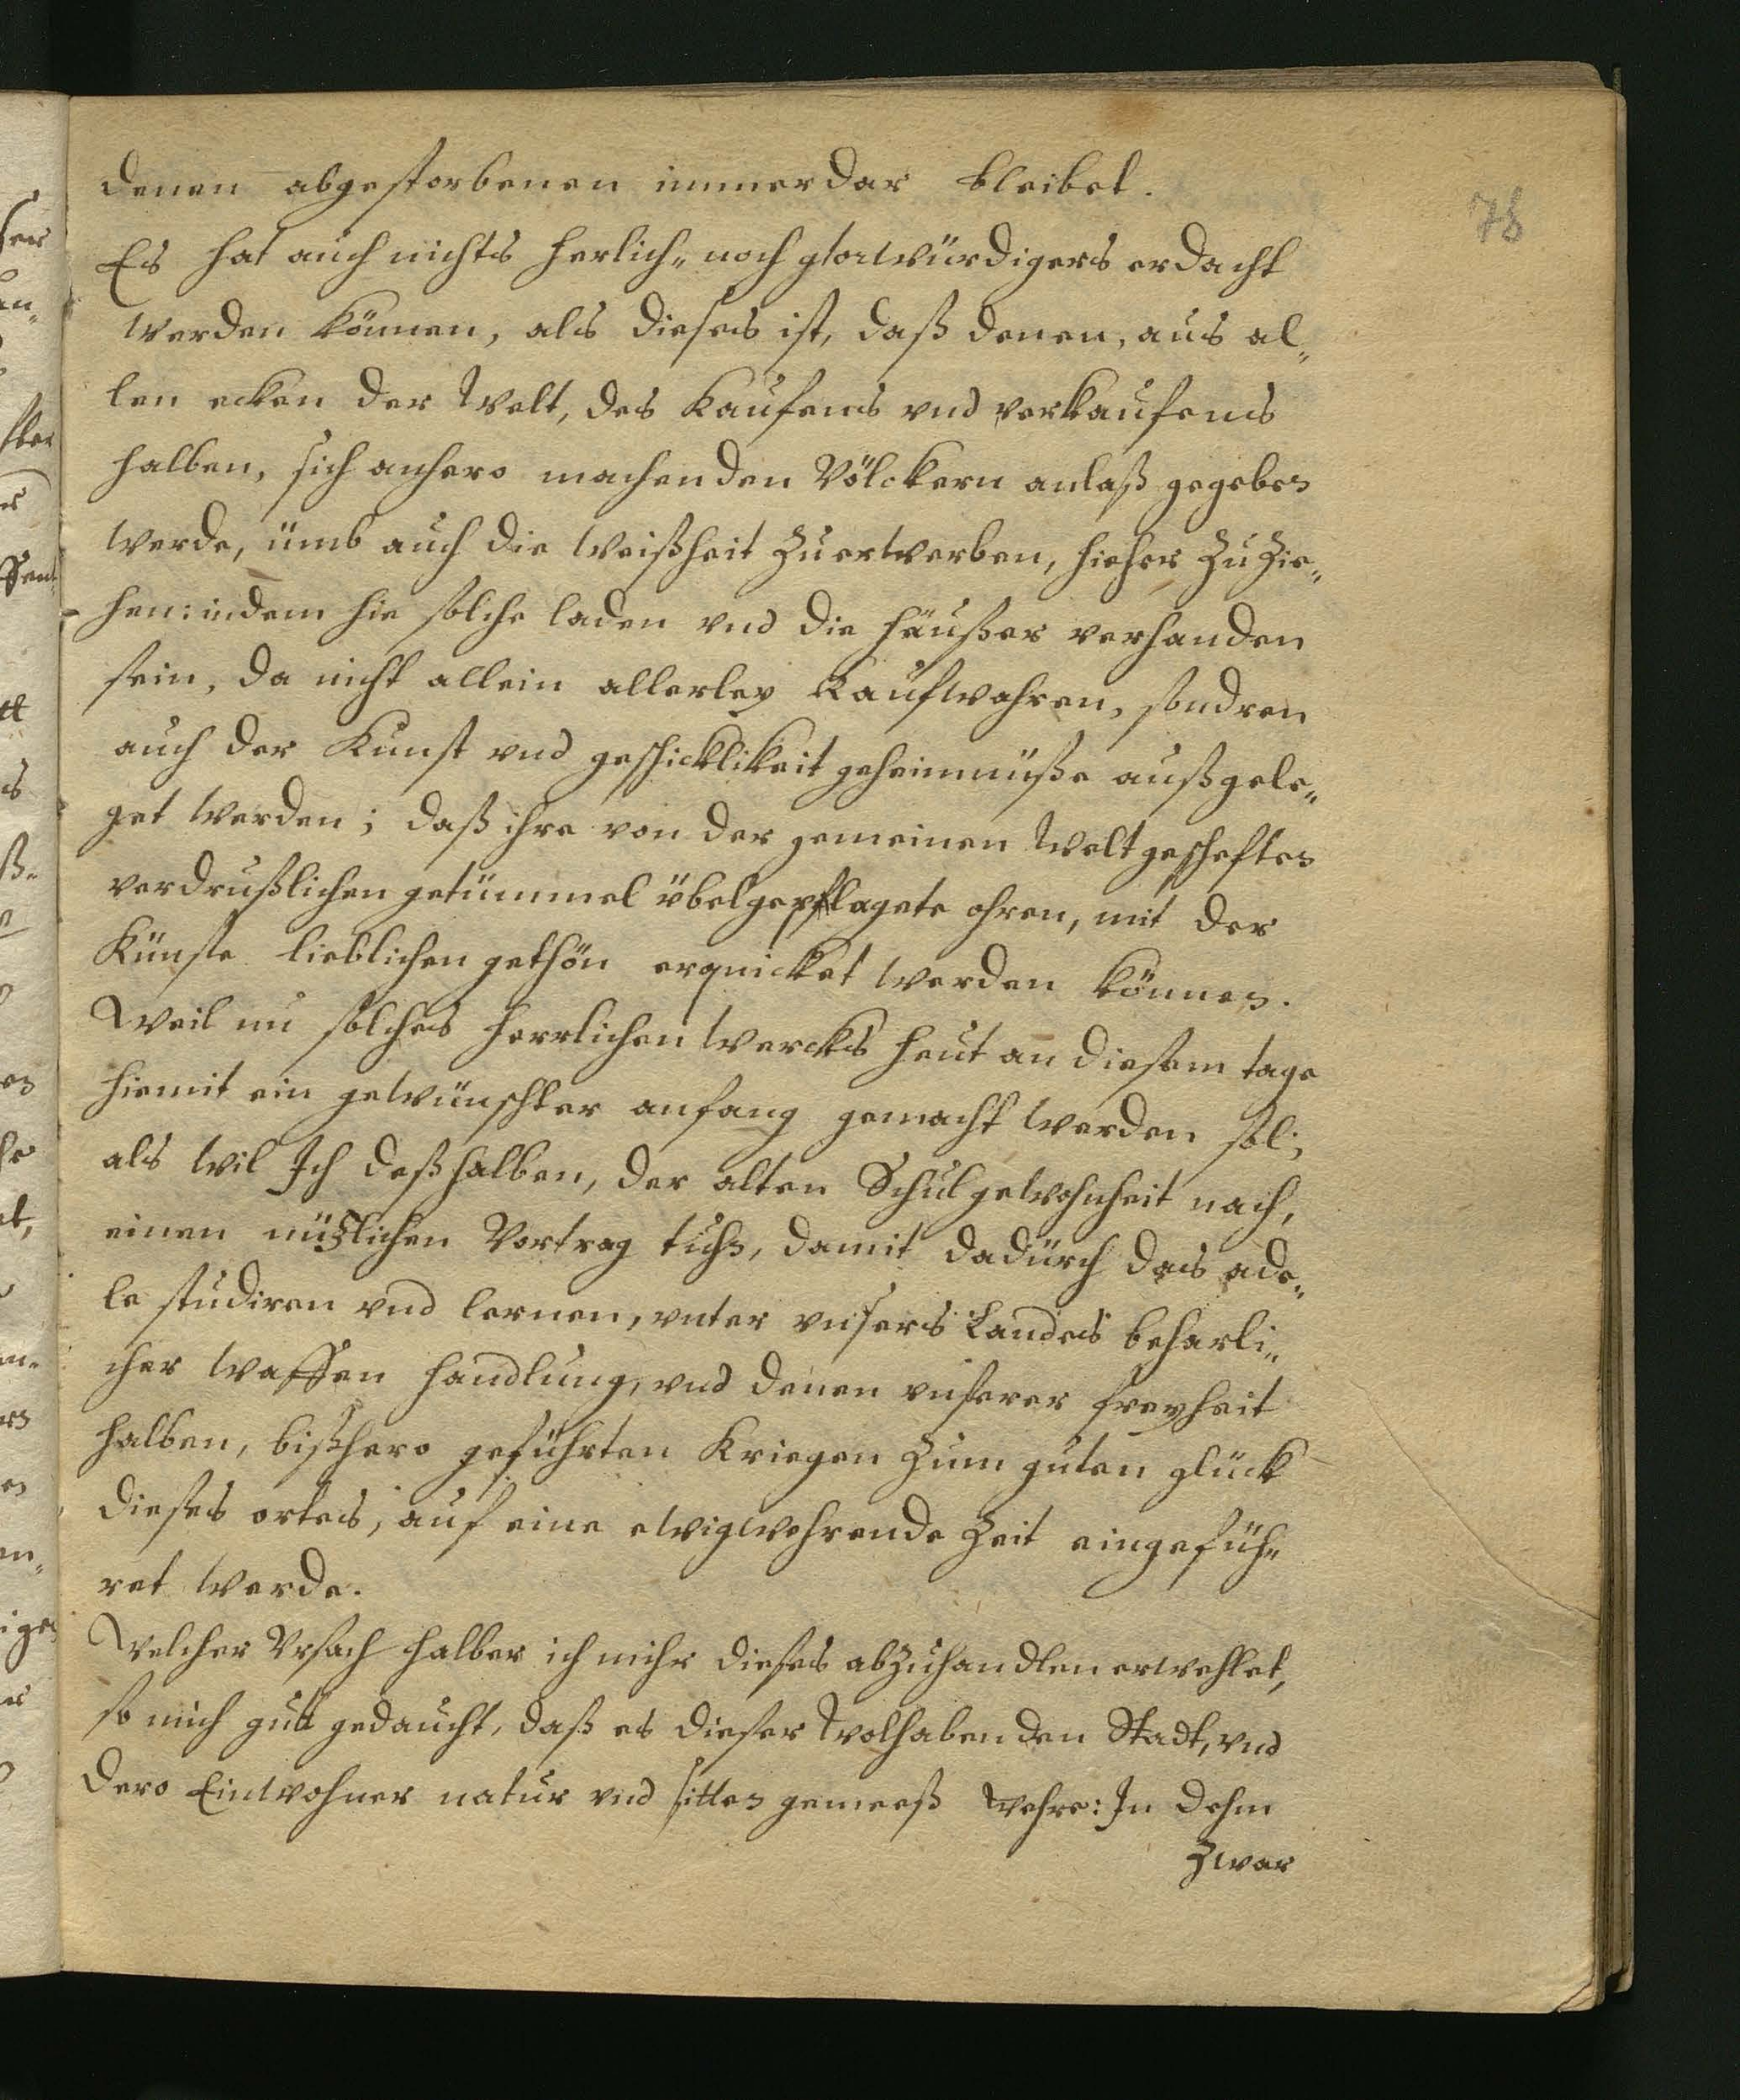 78
denen abgestorbenen immerdar kleibet.
Es hat auch nichts herlich„ noch glorwürdigers erdacht
werden können, als dieses ist, daß denen, aus al„
len ecken der Welt, des Kaufens vnd verkaufens
halben, sich anhero machenden Völckern anlaß gegeben
werde, ümb auch die weißheit zuerwerben, hieher zu zie„
hen: indem hie solche laden vnd die häußer verhanden
sein, da nicht allein allerley Kaufwahren, sondren
auch der Kunst vnd geschicklikeit geheimnüße außgele„
get werden; daß ihre von der gemeinen Weltgescheften
verdrußlichen getümmel übelgepflagete ohren, mit der
Künste lieblichen gethön erquicket werden können.
Weil nu solches herrlichen wercks heut an diesem tage
hiemit ein gewünschter anfang gemacht werden sol;
als wil Ich deßhalben, der alten Schulgewohnheit nach,
einen nützlichen Vortrag tuhn, damit dadürch das ade„
le studiren vnd lernen, vnter vnsers Landes beharli„
cher waffen handlung, vnd denen vnserer freyheit
halben, bißhero geführten Kriegen zum guten glück
dieses ortes, auf eine ewigwehrende Zeit eingefüh„
ret werde.
Welcher Vrsach halber ich mihr dieses abzuhandlen erwehlet,
so mich gutt gedaucht, daß es dieser Wolhabenden Stadt, vnd
dero Einwohner natur vnd sitten gemeeß wehre: In dehm
zwar